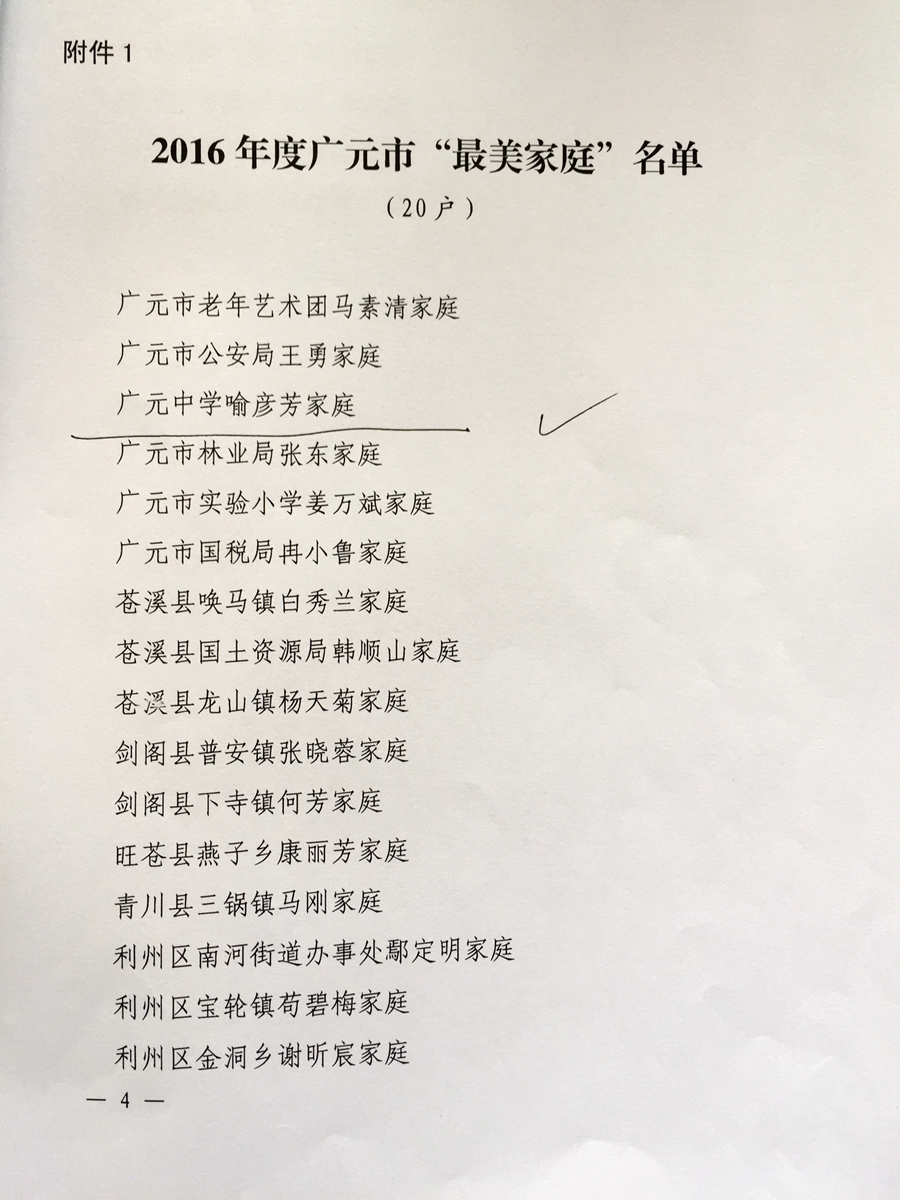 附件 1
2016 年度广元市“最美家庭”名单
（20 户）
广元市老年艺术团马素清家庭
广元市公安局王勇家庭
广元中学喻彦芳家庭
广元市林业局张东家庭
广元市实验小学姜万斌家庭
广元市国税局冉小鲁家庭
苍溪县唤马镇白秀兰家庭
苍溪县国土资源局韩顺山家庭
苍溪县龙山镇杨天菊家庭
剑阁县普安镇张晓蓉家庭
剑阁县下寺镇何芳家庭
旺苍县燕子乡康丽芳家庭
青川县三锅镇马刚家庭
利州区南河街道办事处鄢定明家庭
利州区宝轮镇苟碧梅家庭
利州区金洞乡谢昕宸家庭
— 4 —